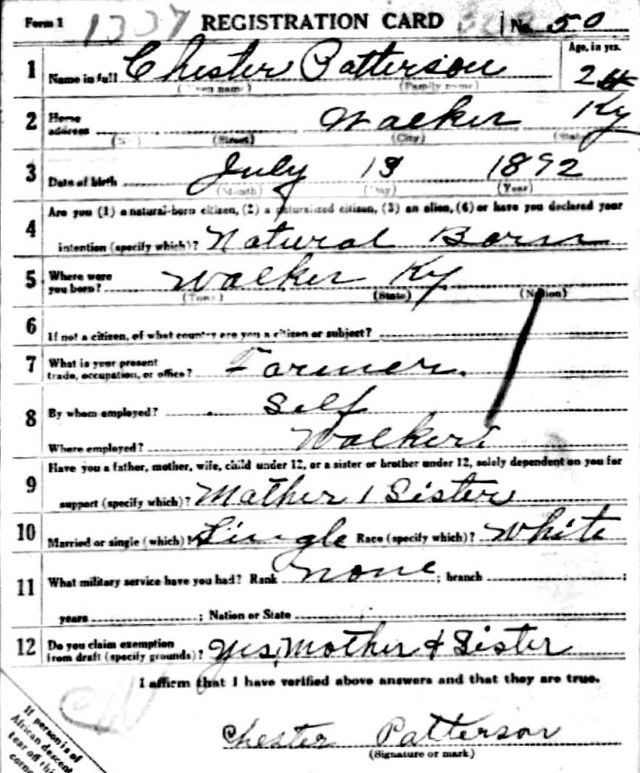 Form 1 1337 REGISTRATION CARD No. 50
1 Name in full Chester Patterson Age, in yrs.
(Given name) (Family name) 24
2 Home address Walker Ky
(No.) (Street) (City) (State)
3 Date of birth July 13 1892
(Month) (Day) (Year)
4 Are you (1) a natural-born citizen, (2) a naturalized citizen, (3) an alien, (4) or have you declared your
intention (specify which)? Natural Born
5 Where were you born? Walker Ky
(Town) (State) (Nation)
6 If not a citizen, of what country are you a citizen or subject?
7 What is your present trade, occupation, or office? Farmer.
8 By whom employed? Self
Where employed? Walker
9 Have you a father, mother, wife, child under 12, or a sister or brother under 12, solely dependent on you for
support (specify which)? Mother 1 Sister
10 Married or single (which)? Single Race (specify which)? White
11 What military service have you had? Rank none ; branch ;
years ; Nation or State
12 Do you claim exemption from draft (specify grounds)? Yes, Mother & Sister
I affirm that I have verified above answers and that they are true.
Chester Patterson
(Signature or mark)
If person is of
African descent
tear off this
corner